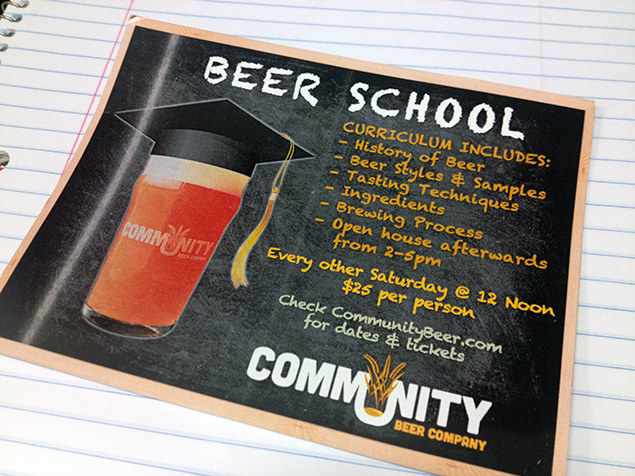 BEER SCHOOL
CURRICULUM INCLUDES:
- History of Beer
- Beer Styles & Samples
- Tasting Techniques
- Ingredients
- Brewing Process
- Open house afterwards
from 2-5pm
Every other Saturday @ 12 Noon
$25 per person
Check CommunityBeer.com
for dates & tickets
COMMUNITY
BEER COMPANY
COMMUNITY
BEER COMPANY